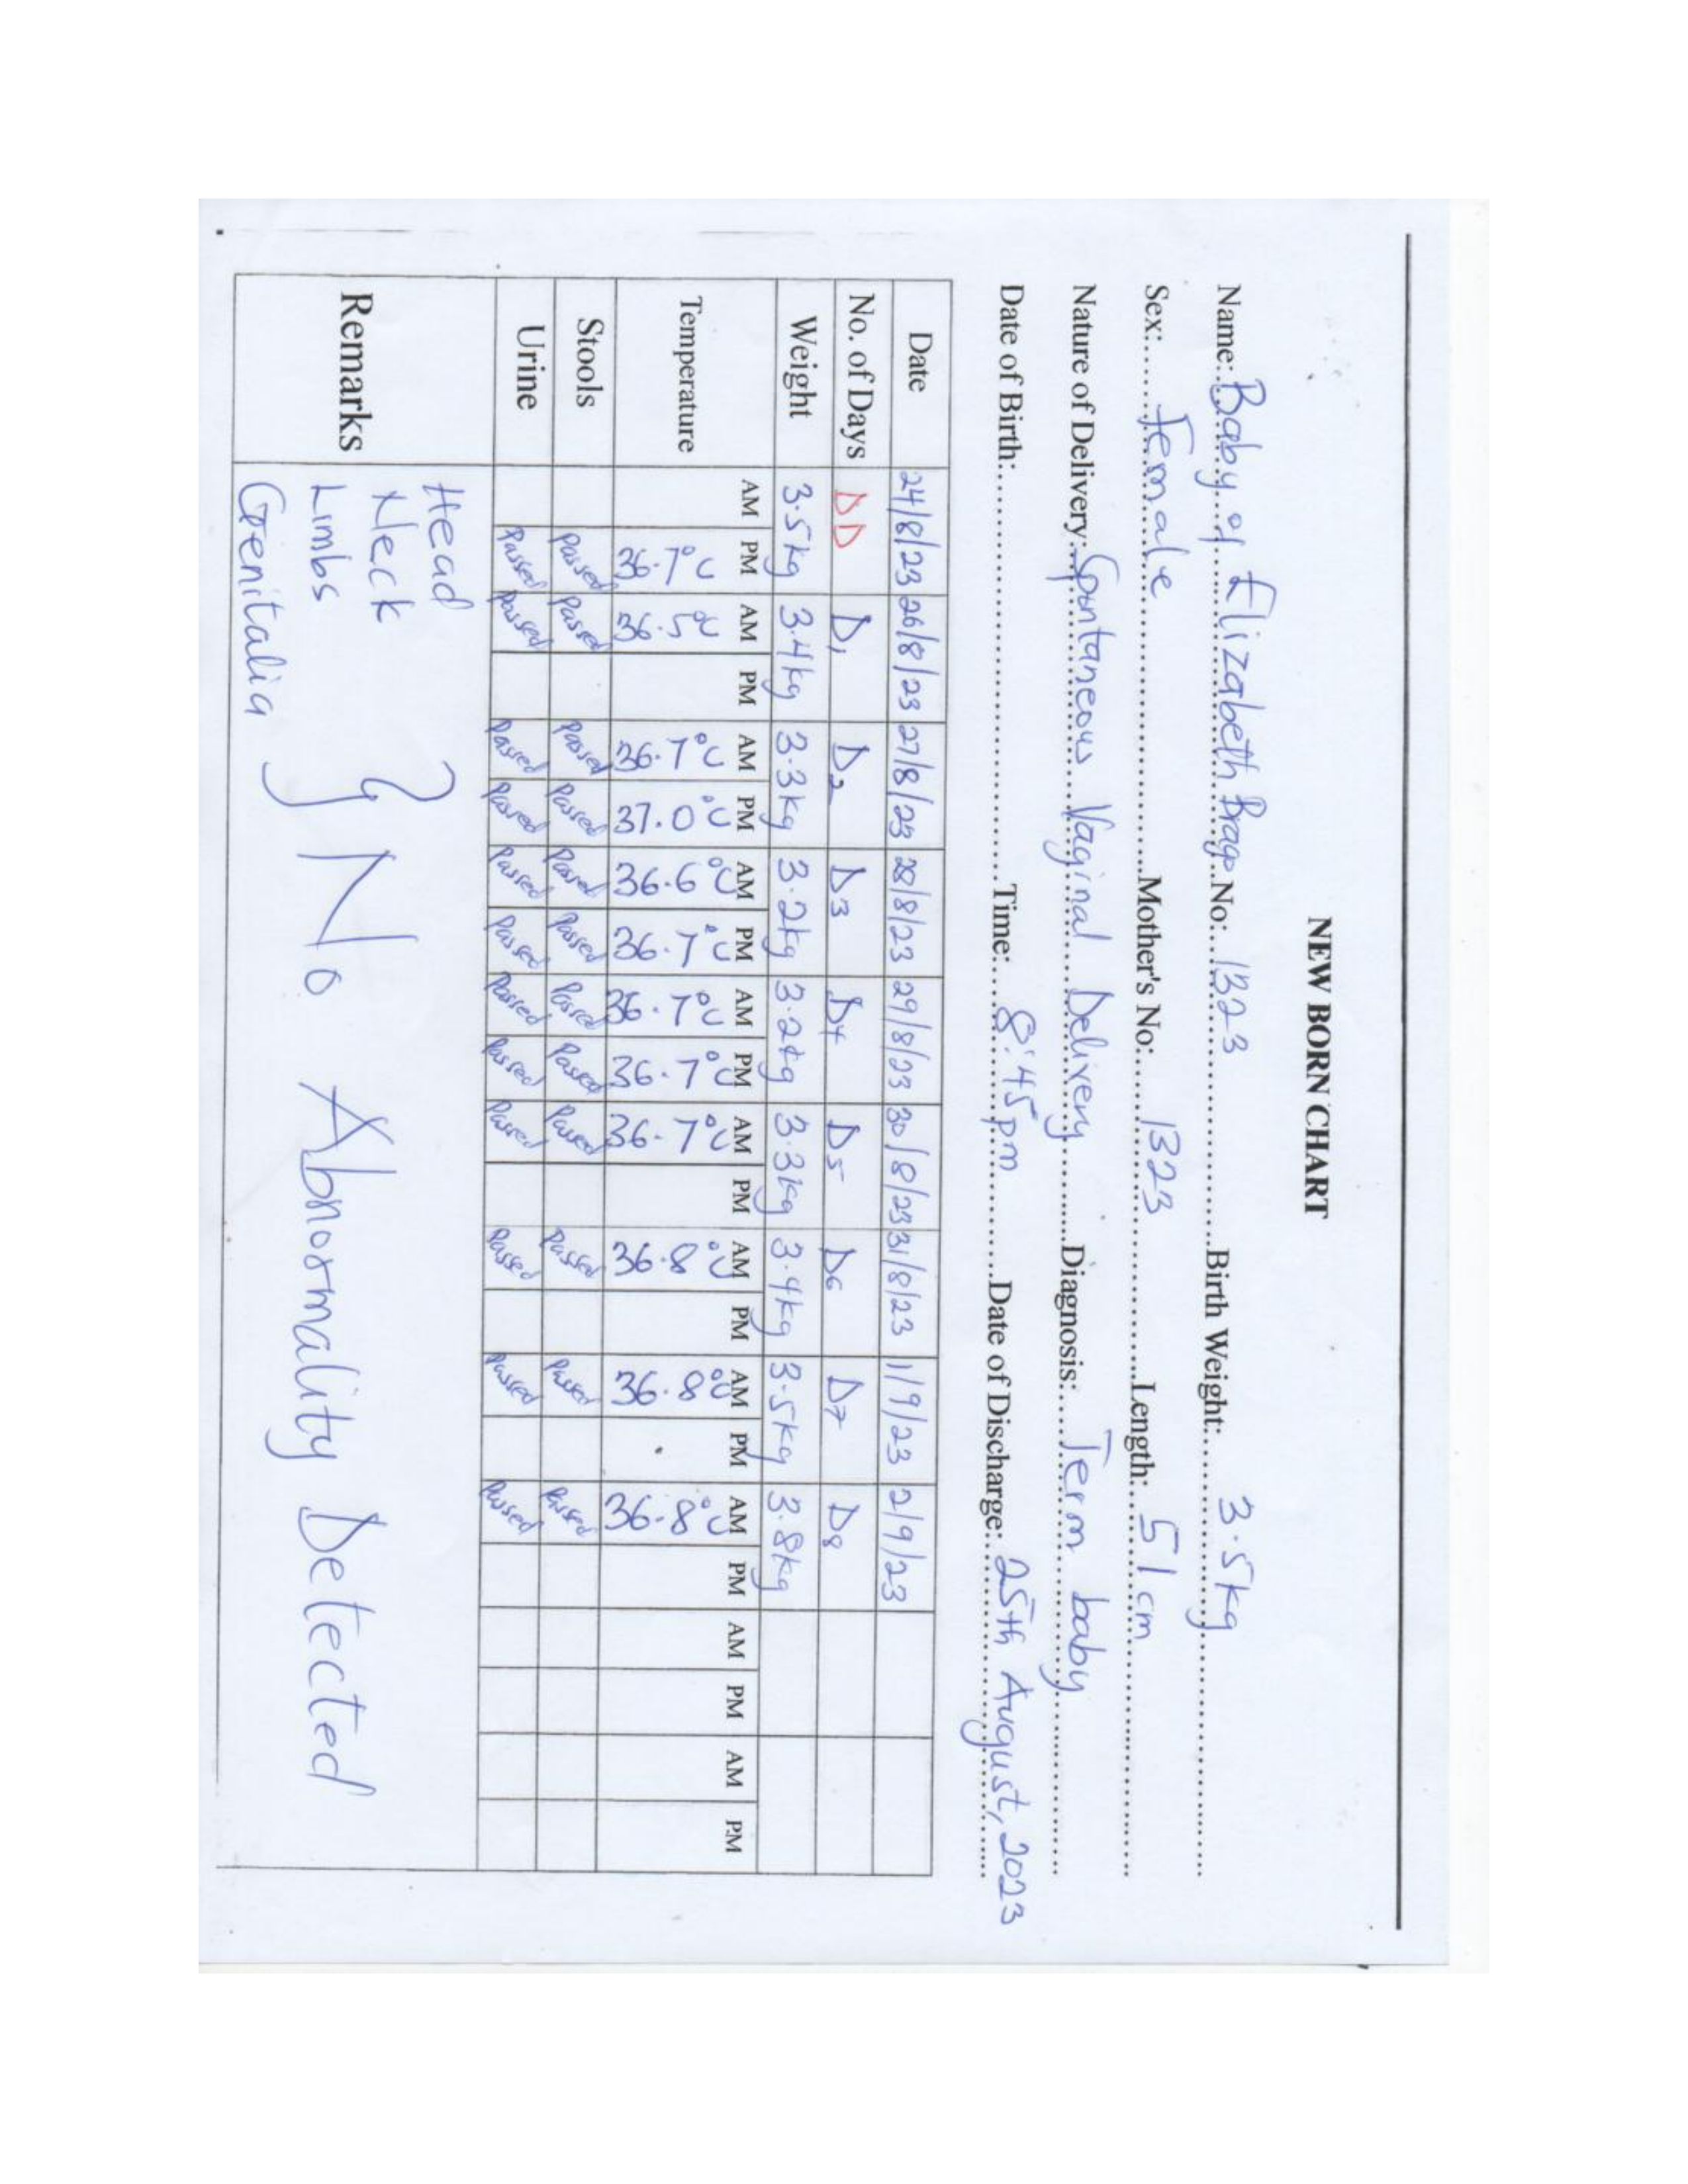 NEW BORN CHART
Name: Baby of Elizabeth No: 1323 Birth Weight: 3.5kg
Sex: Female Mother's No: 1323 Length: 51cm
Nature of Delivery: Spontaneous Vaginal Delivery Diagnosis: Term baby
Date of Birth: Time: 8:45pm Date of Discharge: 25th August, 2023
Date 24/8/23 26/8/23 27/8/23 28/8/23 29/8/23 30/8/23 31/8/23 1/9/23 2/9/23
No. of Days DD D1 D2 D3 D4 D5 D6 D7 D8
Weight 3.5kg 3.4kg 3.3kg 3.2kg 3.2kg 3.3kg 3.4kg 3.5kg 3.8kg
AM PM AM PM AM PM AM PM AM PM AM PM AM PM AM PM AM PM AM PM AM PM
Temperature 36.7°C 36.5°C 36.7°C 37.0°C 36.6°C 36.7°C 36.7°C 36.7°C 36.7°C 36.8°C 36.8°C 36.8°C
Stools Passed Passed Passed Passed Passed Passed Passed Passed Passed Passed Passed Passed
Urine Passed Passed Passed Passed Passed Passed Passed Passed Passed Passed Passed Passed
Remarks
Head
Neck
Limbs
Genitalia
No Abnormality Detected